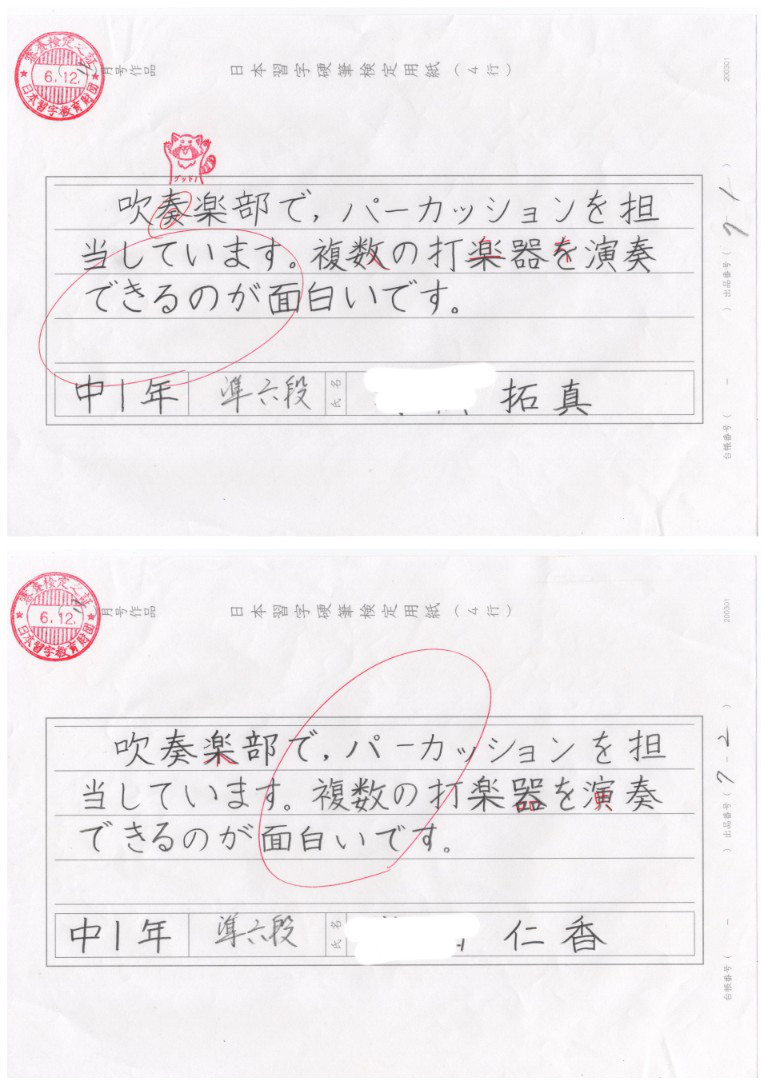 審査検定之証
6.12.
日本習字教育財団
月号作品
日本習字硬筆検定用紙(4行)
200301
グッド!
吹奏楽部で,パーカッションを担
当しています。複数の打楽器を演奏
できるのが面白いです。
中1年 準六段 氏名 拓真
出品番号( 7-1 )
台帳番号( - )
審査検定之証
6.12.
日本習字教育財団
月号作品
日本習字硬筆検定用紙(4行)
200301
吹奏楽部で,パーカッションを担
当しています。複数の打楽器を演奏
できるのが面白いです。
中1年 準六段 氏名 仁香
出品番号( 7-2 )
台帳番号( - )